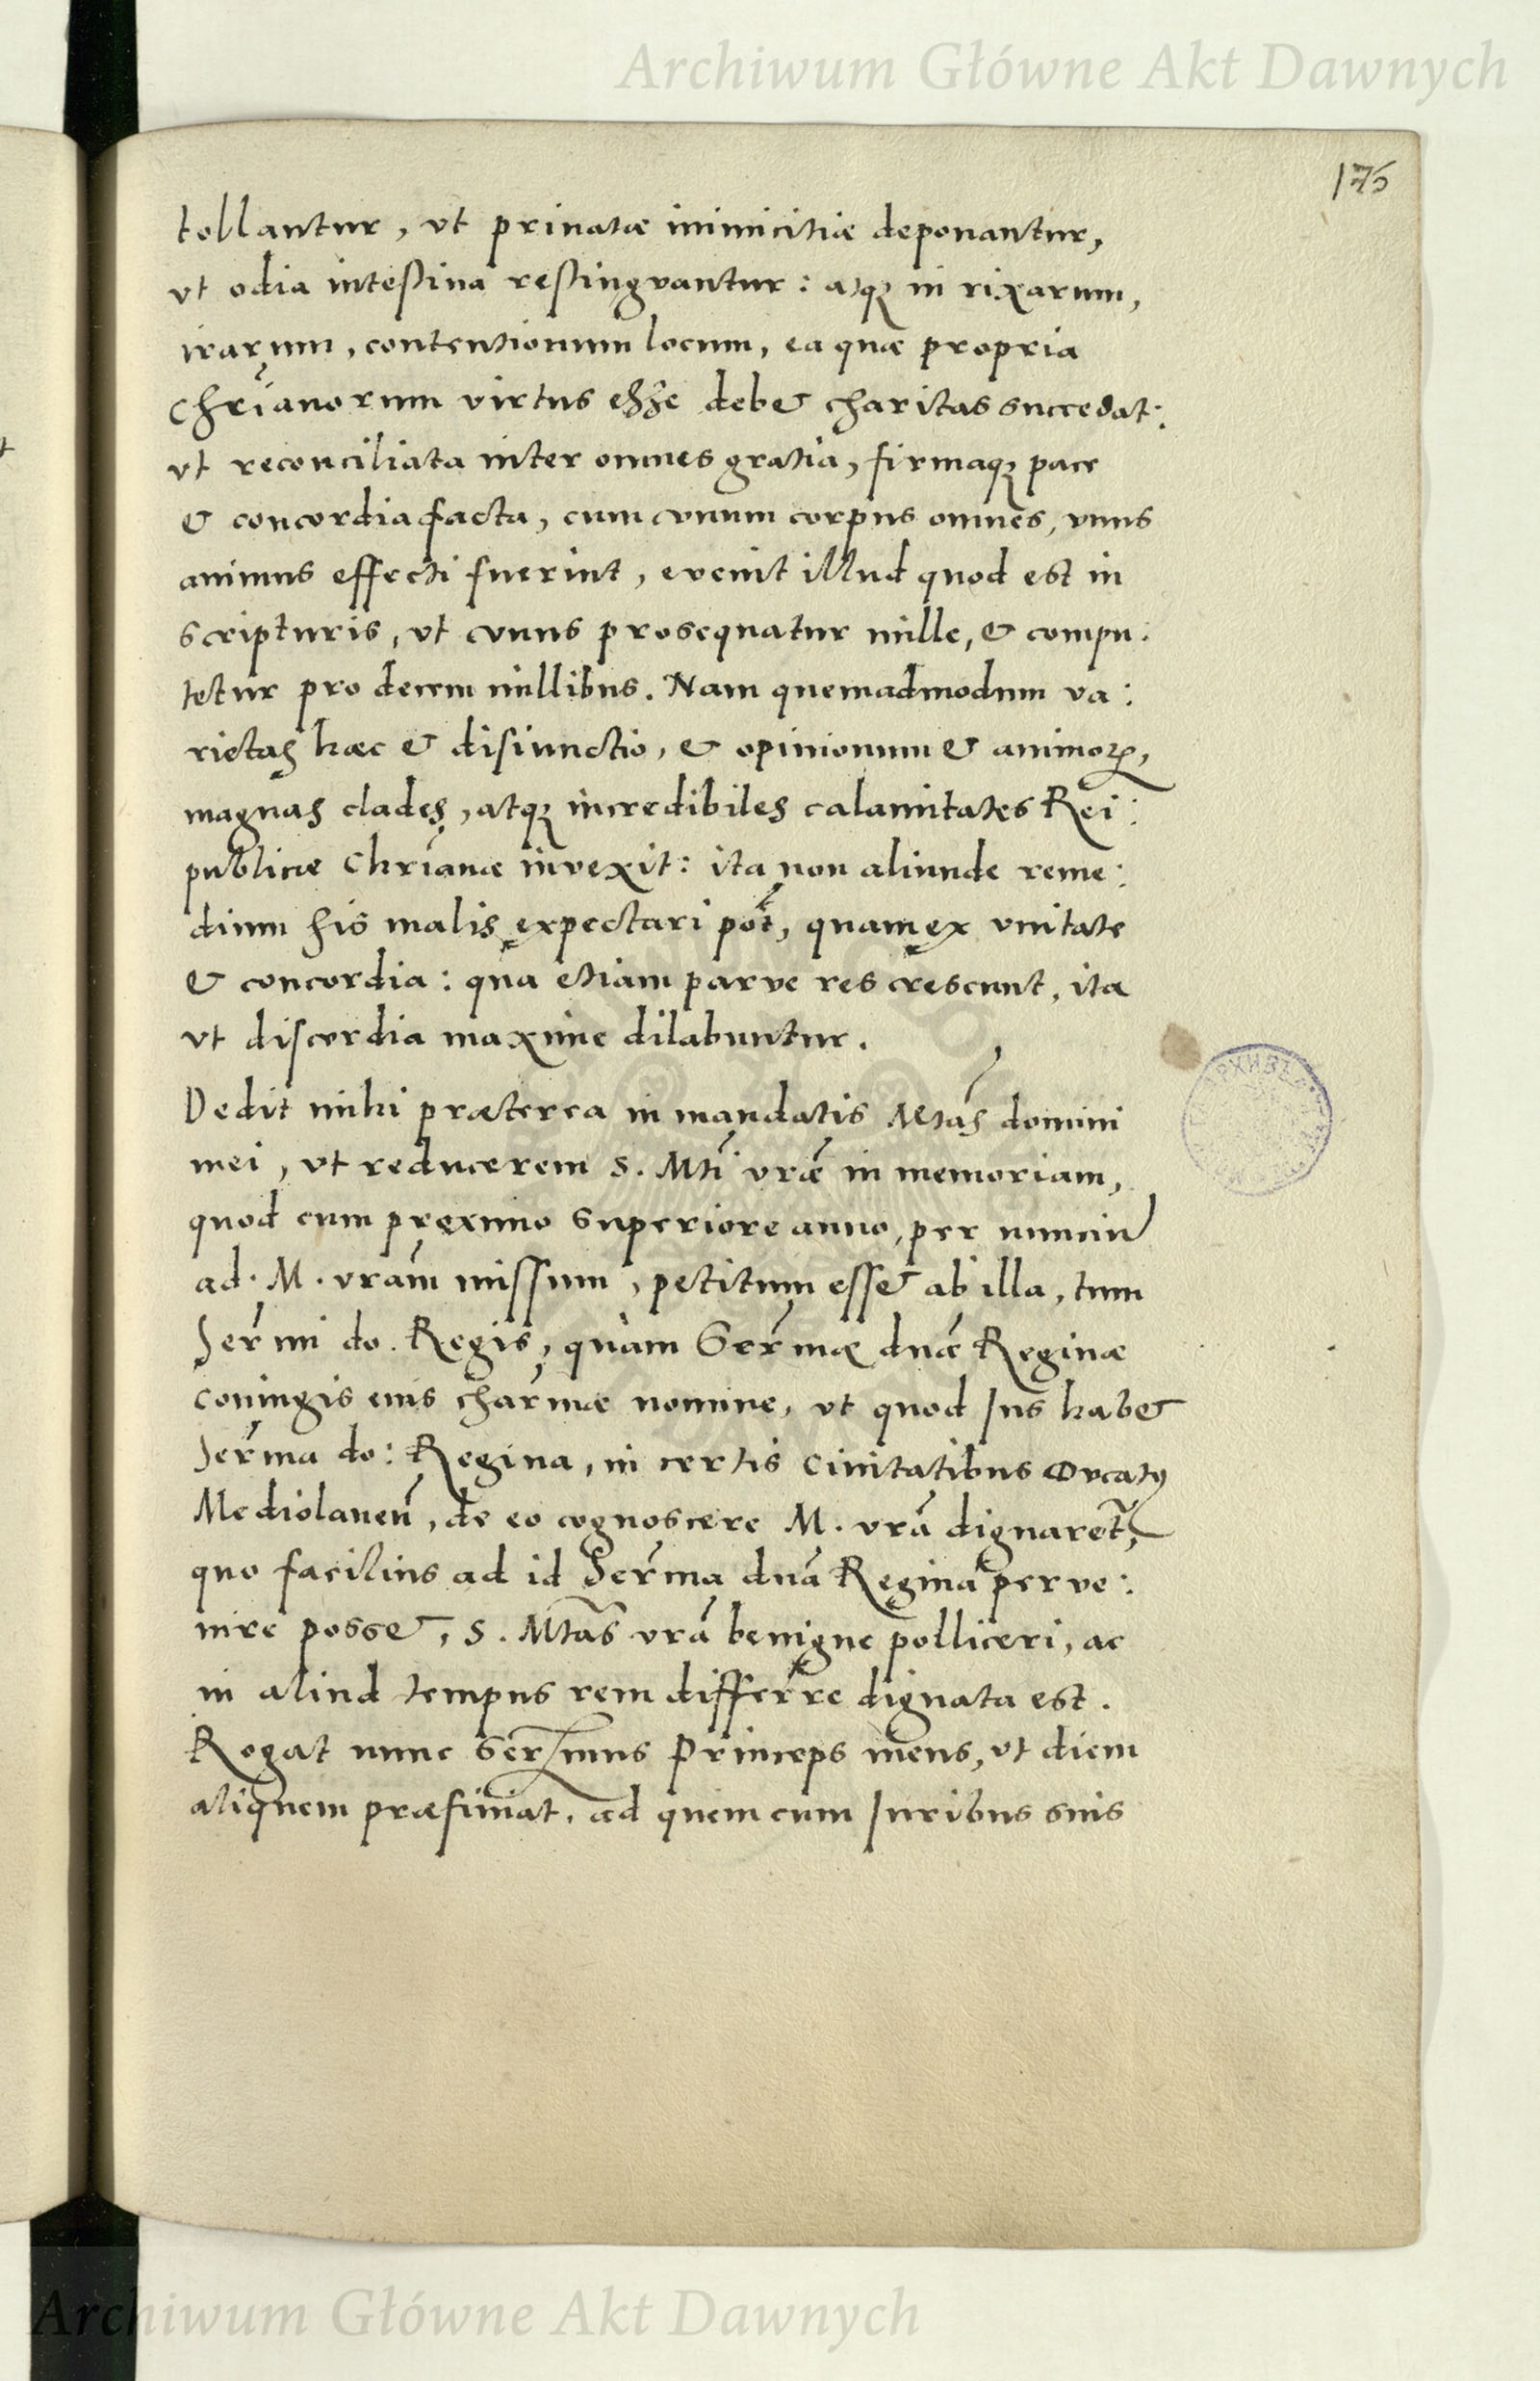 Archiwum Główne Akt Dawnych
175
tollantur, vt priuatæ inimicitiæ deponantur,
vt odia intestina restingvantur: atqꝫ in rixarum,
irarum, contentionum locum, ea quæ propria
Chr̃ianorum virtus esse debet charitas succedat:
vt reconciliata inter omnes gratia, firmaqꝫ pace
& concordia facta, cum vnum corpus omnes, vnus
animus effecti fuerint, evenit illud quod est in
scripturis, vt vnus prosequatur mille, & compu:
tetur pro decem millibus. Nam quemadmodum va:
rietas hæc & disiunctio, & opinionum & animoꝝ,
magnas clades, atqꝫ incredibiles calamitates Rei:
publicæ Chr̃ianæ invexit: ita non aliunde reme:
dium his malis expectari põt, quam ex vnitate
& concordia: qua etiam parve res crescunt, ita
vt discordia maxime dilabuntur.
Dedit mihi præterea in mandatis Mtãs domini
mei, vt reducerem S. Mtĩ vræ̃ in memoriam,
quod cum proximo superiore anno, per nunciũ
ad. M. vrãm missum, petitum esset ab illa, tum
Ser̃mi do. Regis, quàm Ser̃mæ dnæ̃ Reginæ
coniugis eius char̃mæ nomine, vt quod Ius habet
Ser̃ma do: Regina, in certis Ciuitatibus Ducatꝰ
Mediolaneñ, de eo cognoscere M. vrã dignaret̃,
quo facilius ad id Ser̃ma dnã Regina perve:
nire posset, S. Mtãs vrã benigne polliceri, ac
in aliud tempus rem differre dignata est.
Rogat nunc Ser̃mus Princeps meus, vt diem
aliquem præfiniat, ad quem cum Iuribus suis
Archiwum Główne Akt Dawnych